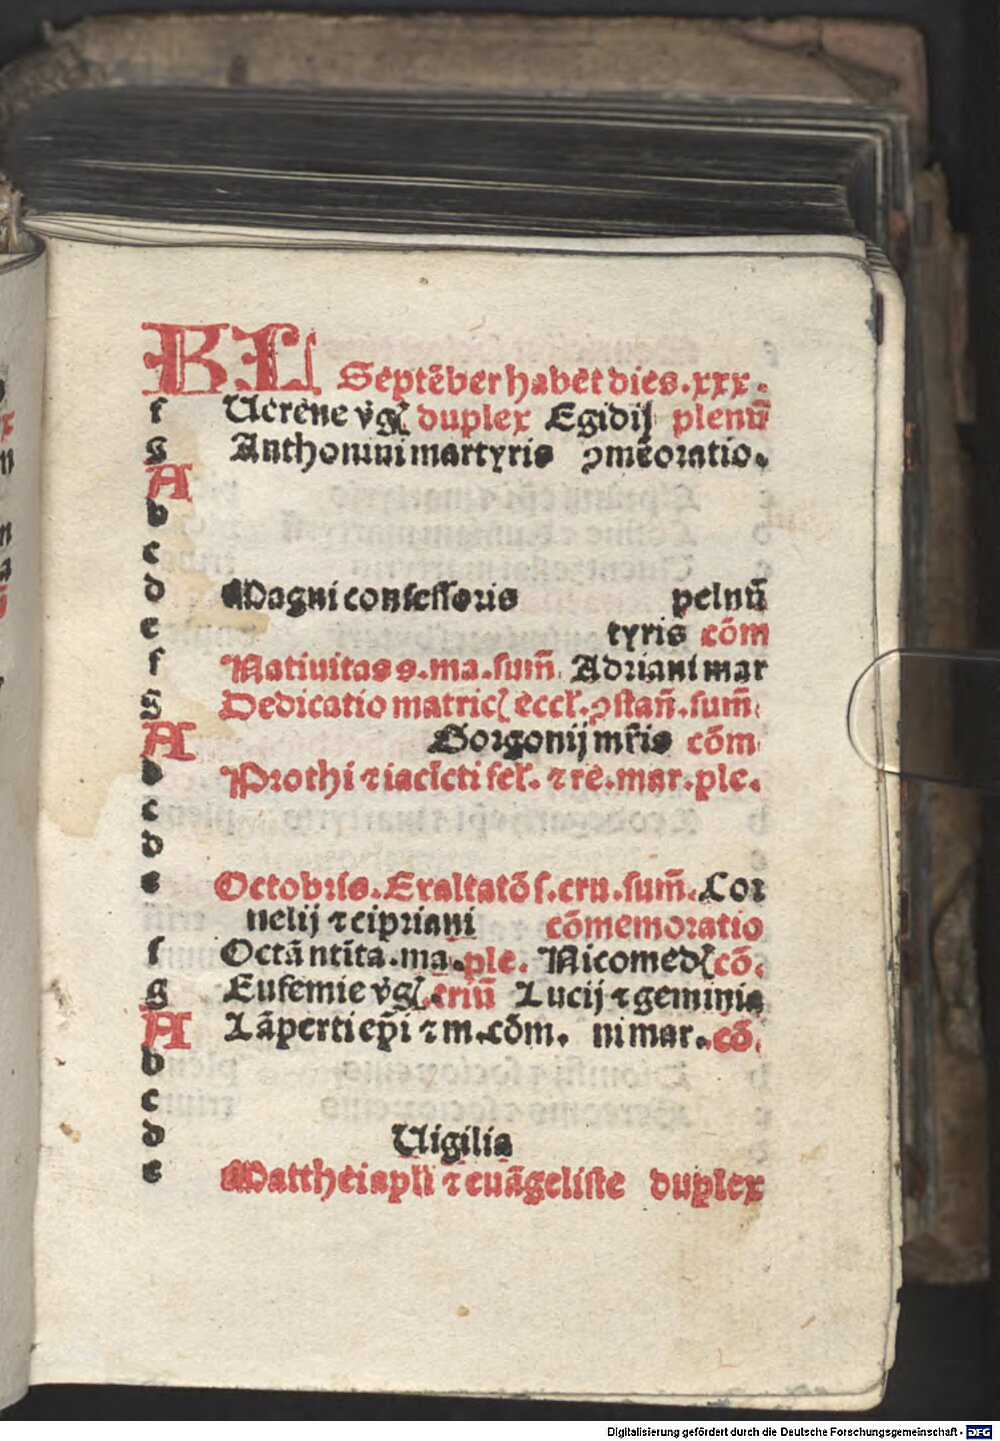 KL Septēber habet dies.xxx.
f Verene v̄gꝭ duplex Egidij plenū
g Anthonini martyris ꝯmēoratio.
A
b
c
d Magni confessoris pelnū
e tyris cōm
f Natiuitas s.ma.sum̄. Adriani mar
g Dedicatio matricꝭ eccl̄.ꝯstan̄.sum̄.
A Gorgonij mr̄is cōm
b Prothi ⁊ iacīcti fel̄. ⁊ re.mar.ple.
c
d
e Octobris. Exaltatō s.cru.sum̄. Cor
nelij ⁊ cipriani cōmemoratio
f Octā ntīta.ma.ple. Nicomedꝭ cō.
g Eufemie v̄gꝭ. triū Lucij ⁊ geminia
A Lāperti ep̄i ⁊ m.cōm. ni mar.cō.
b
c
d Vigilia
e Matthei apl̄i ⁊ euāgeliste duplex
Digitalisierung gefördert durch die Deutsche Forschungsgemeinschaft - DFG